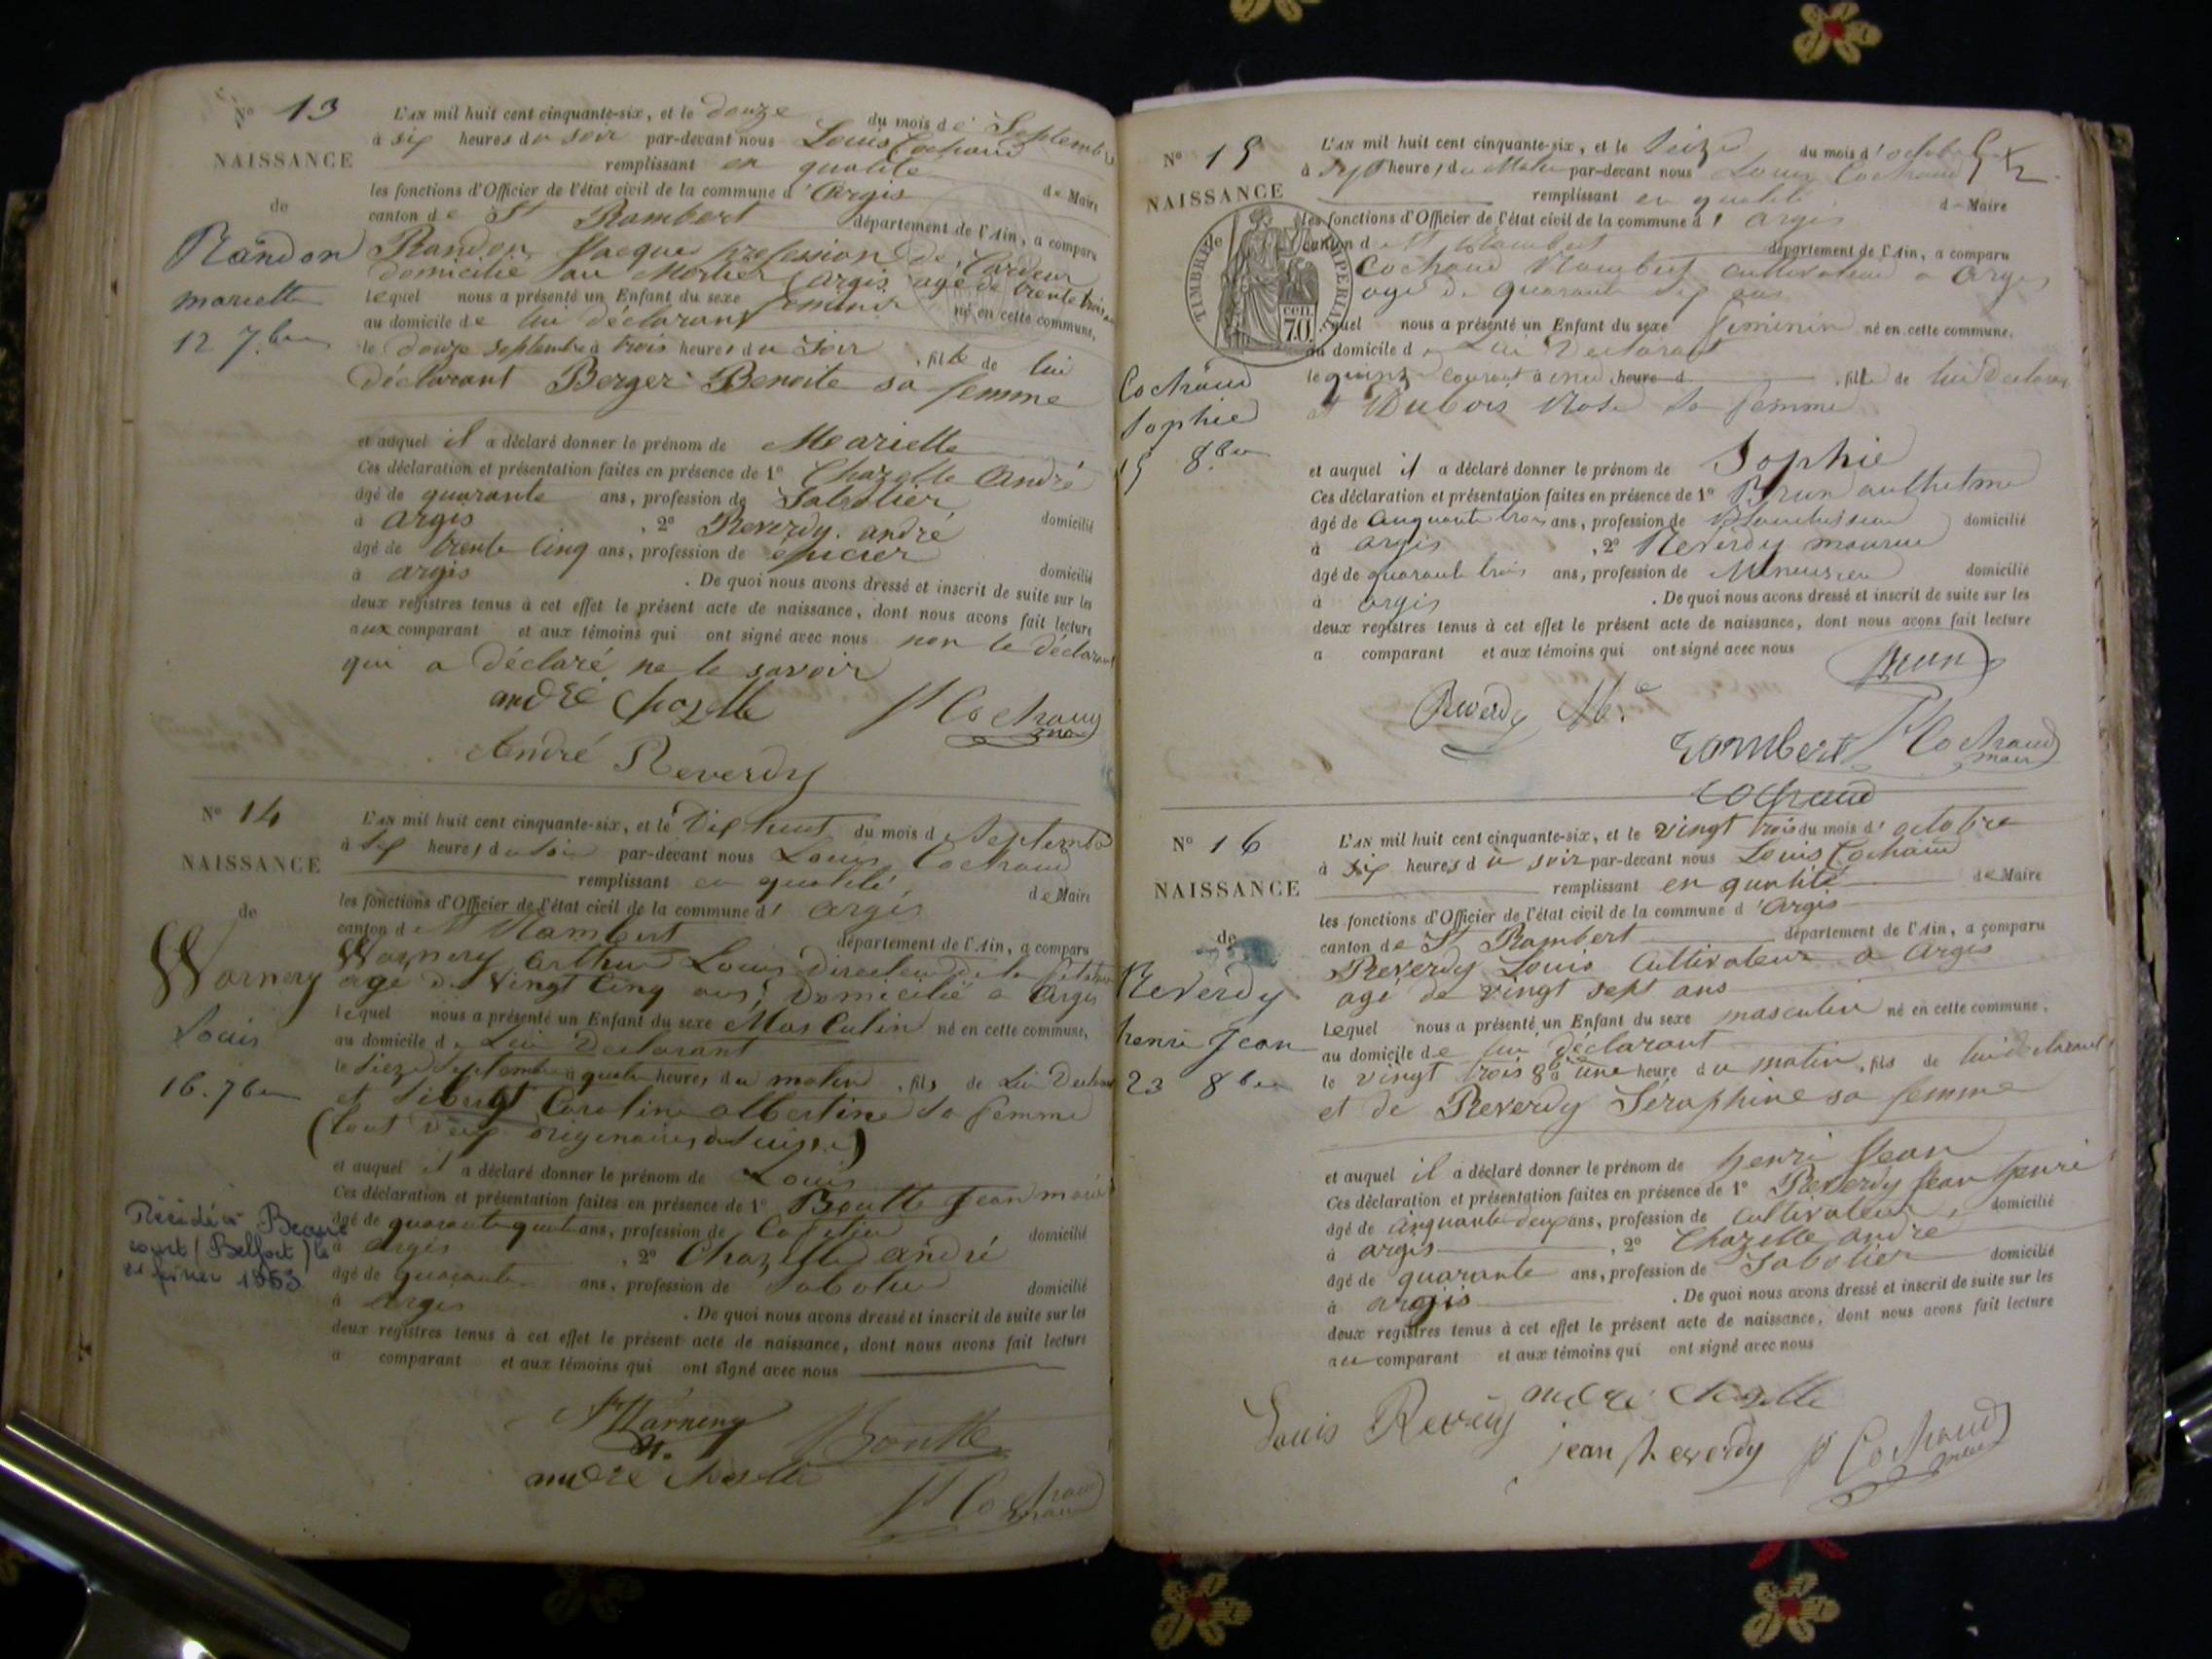 N° 13
NAISSANCE
de
Randon
Marielle
12 7bre
L'AN mil huit cent cinquante-six, et le douze du mois de Septembre
à six heures du soir par-devant nous Louis Cochaud
remplissant en qualité de Maire
les fonctions d'Officier de l'état civil de la commune d'Argis
canton de St Rambert département de l'Ain, a comparu
Randon Jacques profession de Cardeur
domicilié au Mortier (argis) agé de trente trois ans
lequel nous a présenté un Enfant du sexe feminin né en cette commune,
au domicile de lui déclarant
le douze septembre à trois heures du soir, fille de lui
déclarant Berger Benoite sa femme
et auquel il a déclaré donner le prénom de Marielle
Ces déclaration et présentation faites en présence de 1° Chazelle André
âgé de quarante ans, profession de Sabotier domicilié
à argis, 2° Reverdy andré
âgé de trente cinq ans, profession de épicier domicilié
à argis. De quoi nous avons dressé et inscrit de suite sur les
deux registres tenus à cet effet le présent acte de naissance, dont nous avons fait lecture
aux comparant et aux témoins qui ont signé avec nous non le déclarant
qui a déclaré ne le savoir
andré Chazelle
Ls Cochaud
maire
André Reverdy
N° 14
NAISSANCE
de
Warnery
Louis
16. 7bre
Décédé à Beaucourt (Belfort) le
21 février 1953
L'AN mil huit cent cinquante-six, et le Dix huit du mois de Septembre
à six heures du soir par-devant nous Louis Cochaud
remplissant en qualité de Maire
les fonctions d'Officier de l'état civil de la commune d'argis
canton de St Rambert département de l'Ain, a comparu
Warnery Arthur Louis Directeur de la filature
agé de Vingt Cinq ans, Domicilié a Argis
lequel nous a présenté un Enfant du sexe Masculin né en cette commune,
au domicile de Lui Declarant
le Sieze Septembre à quatre heures du matin, fils de Lui Declarant
et Caroline albertine Sa femme
(tout deux originaires de Suisse)
et auquel il a déclaré donner le prénom de Louis
Ces déclaration et présentation faites en présence de 1° Boutte Jean marie
âgé de quarante quatre ans, profession de Cafetier domicilié
à argis, 2° Chazelle andré
âgé de quarante ans, profession de Sabotier domicilié
à argis. De quoi nous avons dressé et inscrit de suite sur les
deux registres tenus à cet effet le présent acte de naissance, dont nous avons fait lecture
a comparant et aux témoins qui ont signé avec nous
Warnery
Boutte
andré Chazelle
Ls Cochaud
maire
N° 15
NAISSANCE
de
TIMBRE IMPERIAL
70 cen.
Cochaud
Sophie
15 8bre
L'AN mil huit cent cinquante-six, et le Seize du mois d'octobre
à Sept heures du Matin par-devant nous Louis Cochaud
remplissant en qualité de Maire
les fonctions d'Officier de l'état civil de la commune d'argis
canton de St Rambert département de l'Ain, a comparu
Cochaud Rambert cultivateur a Argis
agé de quarante six ans
lequel nous a présenté un Enfant du sexe feminin né en cette commune,
au domicile de Lui Declarant
le quinze courant à une heure d, fille de lui Declarant
et Dubois Rose Sa femme
et auquel il a déclaré donner le prénom de Sophie
Ces déclaration et présentation faites en présence de 1° Brun anthelme
âgé de cinquante trois ans, profession de domicilié
à argis, 2° Reverdy maurice
âgé de quarante trois ans, profession de Menuisier domicilié
à argis. De quoi nous avons dressé et inscrit de suite sur les
deux registres tenus à cet effet le présent acte de naissance, dont nous avons fait lecture
a comparant et aux témoins qui ont signé avec nous
Brun
Reverdy Mce
rambert Cochaud
Ls Cochaud
maire
N° 16
NAISSANCE
de
Reverdy
henri Jean
23 8bre
L'AN mil huit cent cinquante-six, et le vingt trois du mois d'octobre
à six heures du soir par-devant nous Louis Cochaud
remplissant en qualité de Maire
les fonctions d'Officier de l'état civil de la commune d'Argis
canton de St Rambert département de l'Ain, a comparu
Reverdy Louis Cultivateur a Argis
agé de vingt sept ans
Lequel nous a présenté un Enfant du sexe masculin né en cette commune,
au domicile de lui déclarant
le vingt trois 8bre à une heure du matin, fils de lui declarant
et de Reverdy Séraphine sa femme
et auquel il a déclaré donner le prénom de henri Jean
Ces déclaration et présentation faites en présence de 1° Reverdy Jean henri
âgé de cinquante deux ans, profession de cultivateur, domicilié
à argis, 2° Chazelle andré
âgé de quarante ans, profession de Sabotier domicilié
à argis. De quoi nous avons dressé et inscrit de suite sur les
deux registres tenus à cet effet le présent acte de naissance, dont nous avons fait lecture
au comparant et aux témoins qui ont signé avec nous
Louis Reverdy
andré Chazelle
jean Reverdy
Ls Cochaud
maire